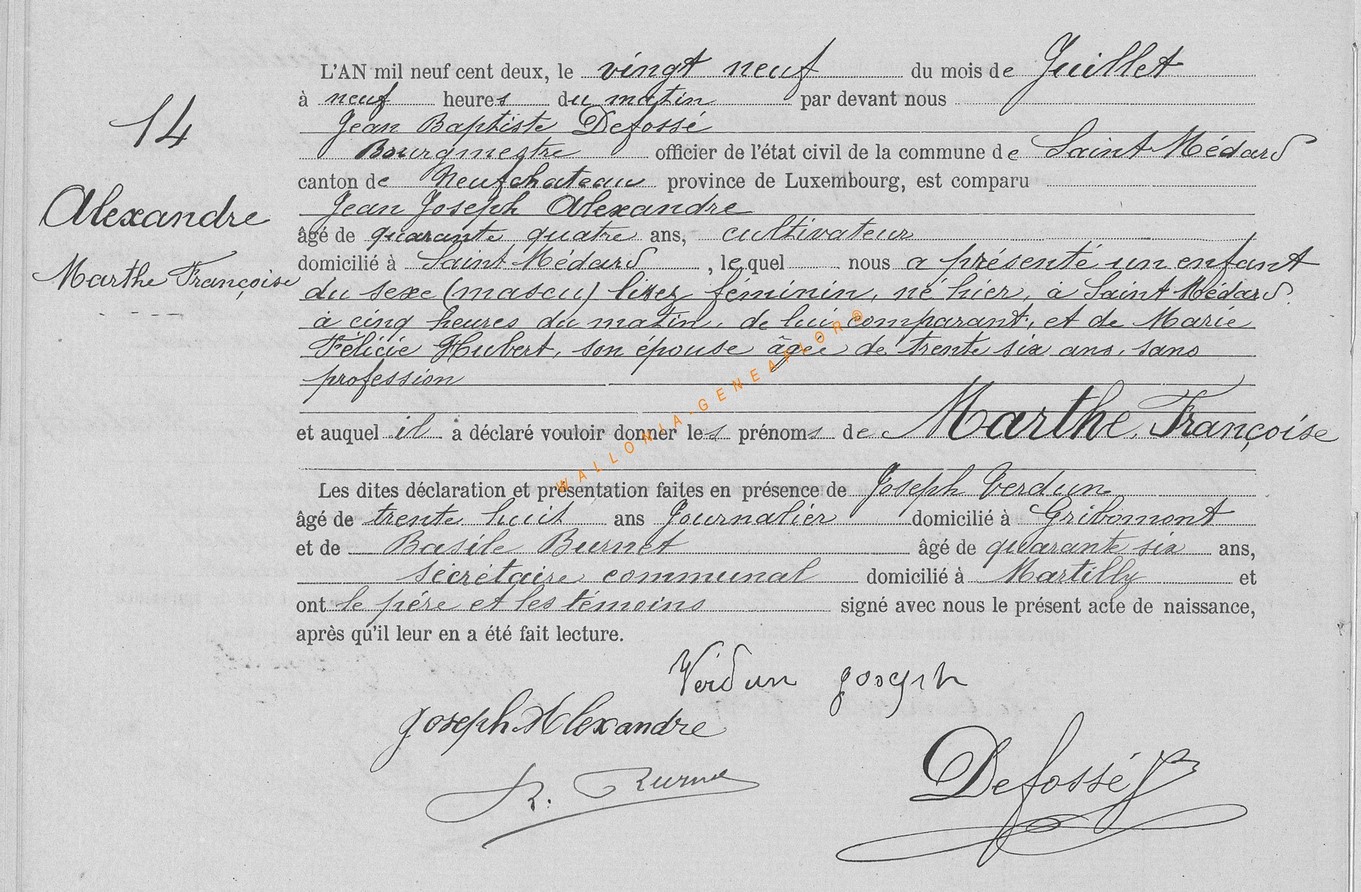 L'AN mil neuf cent deux, le vingt neuf du mois de Juillet
à neuf heures du matin par devant nous
Jean Baptiste Defossé
Bourgmestre officier de l'état civil de la commune de Saint-Médard
canton de Neufchateau province de Luxembourg, est comparu
Jean Joseph Alexandre
âgé de quarante quatre ans, cultivateur
domicilié à Saint-Médard, lequel nous a présenté un enfant
du sexe (mascu) lisez féminin, né hier, à Saint-Médard.
à cinq heures du matin, de lui comparant, et de Marie
Félicie Hubert, son épouse âgée de trente six ans, sans
profession
et auquel il a déclaré vouloir donner les prénoms de Marthe, Françoise
Les dites déclaration et présentation faites en présence de Joseph Verdun
âgé de trente huit ans Journalier domicilié à Gribomont
et de Basile Burnet âgé de quarante six ans,
secrétaire communal domicilié à Martilly et
ont le père et les témoins signé avec nous le présent acte de naissance,
après qu'il leur en a été fait lecture.
14
Alexandre
Marthe Françoise
Verdun Joseph
Joseph Alexandre
Defossé
WALLONIA-GENEALOR@